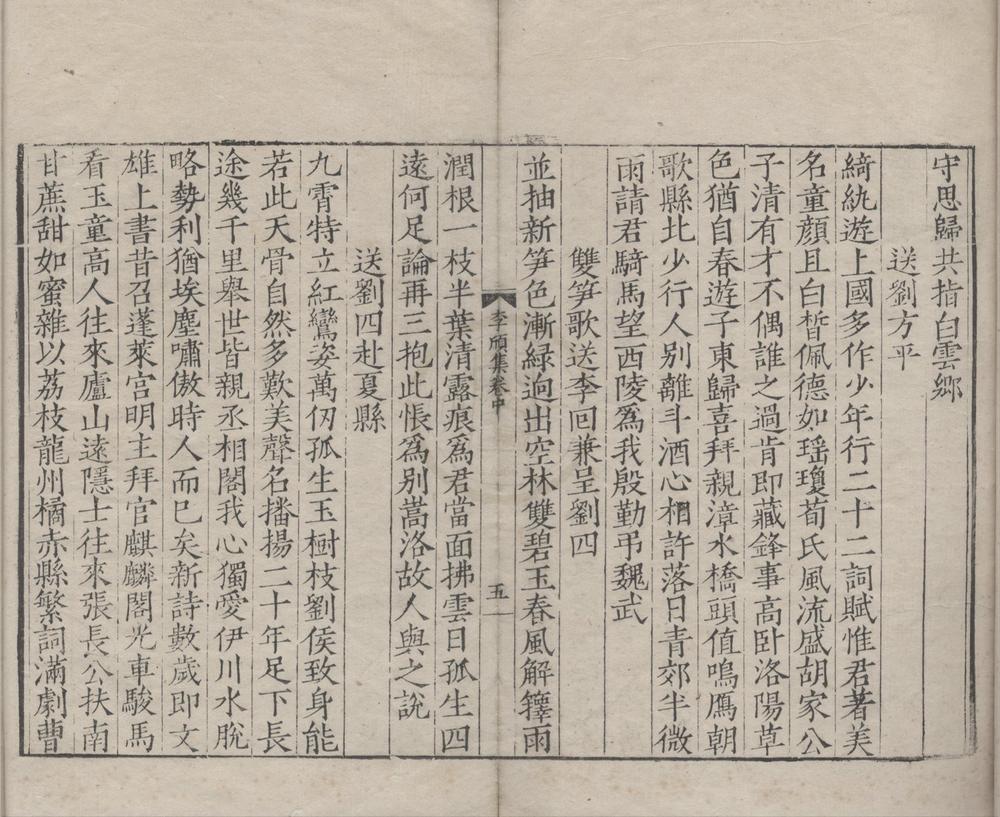 守思歸共指白雲鄉
送劉方平
綺紈遊上國多作少年行二十二詞賦惟君著美
名童顏且白皙佩德如瑶瓊荀氏風流盛胡家公
子清有才不偶誰之過肯即藏鋒事高卧洛陽草
色猶自春遊子東歸喜拜親漳水橋頭值鳴鴈朝
歌縣北少行人别離斗酒心相許落日青郊半微
雨請君騎馬望西陵爲我殷勤弔魏武
雙笋歌送李回兼呈劉四
並抽新笋色漸緑逈出空林雙碧玉春風解籜雨
李頎集卷中
五
潤根一枝半葉清露痕爲君當面拂雲日孤生四
遠何足論再三抱此悵爲别嵩洛故人與之說
送劉四赴夏縣
九霄特立紅鸞姿萬仭孤生玉樹枝劉侯致身能
若此天骨自然多歎美聲名播揚二十年足下長
途幾千里舉世皆親丞相閣我心獨愛伊川水脫
略勢利猶埃塵嘯傲時人而已矣新詩數歲即文
雄上書昔召蓬萊宫明主拜官麒麟閣光車駿馬
看玉童高人往來廬山遠隱士往來張長公扶南
甘蔗甜如蜜雜以荔枝龍州橘赤縣繁詞滿劇曹